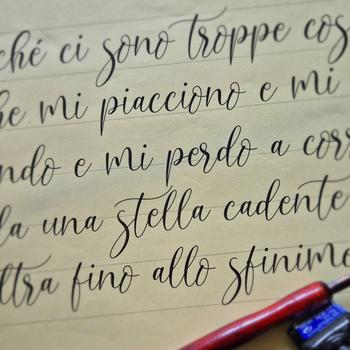 ché ci sono troppe cos
he mi piacciono e mi
ndo e mi perdo a corr
la una stella cadente
ltra fino allo sfinime